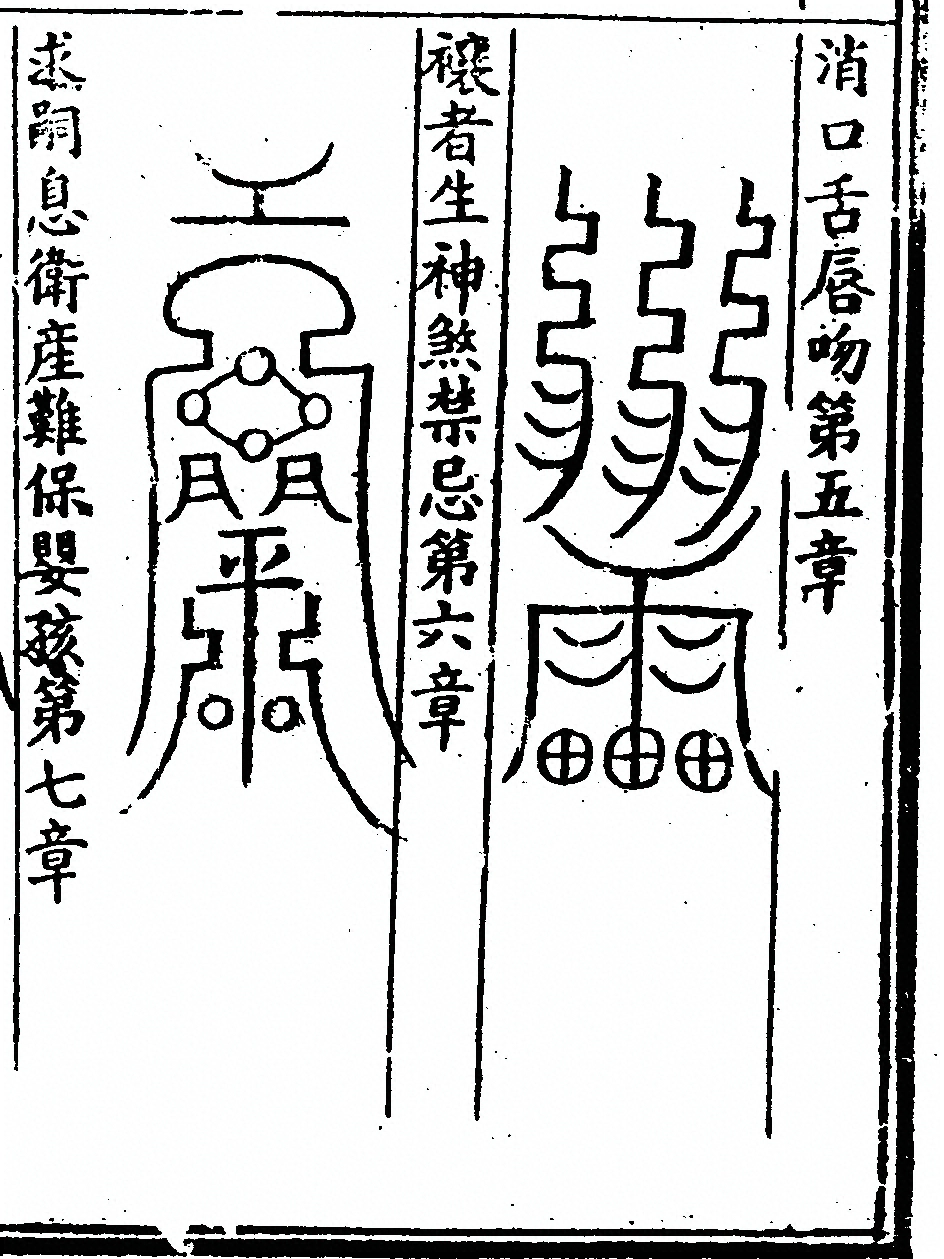 消口舌唇吻第五章
禳者生神煞禁忌第六章
求嗣息衛産難保嬰孩第七章